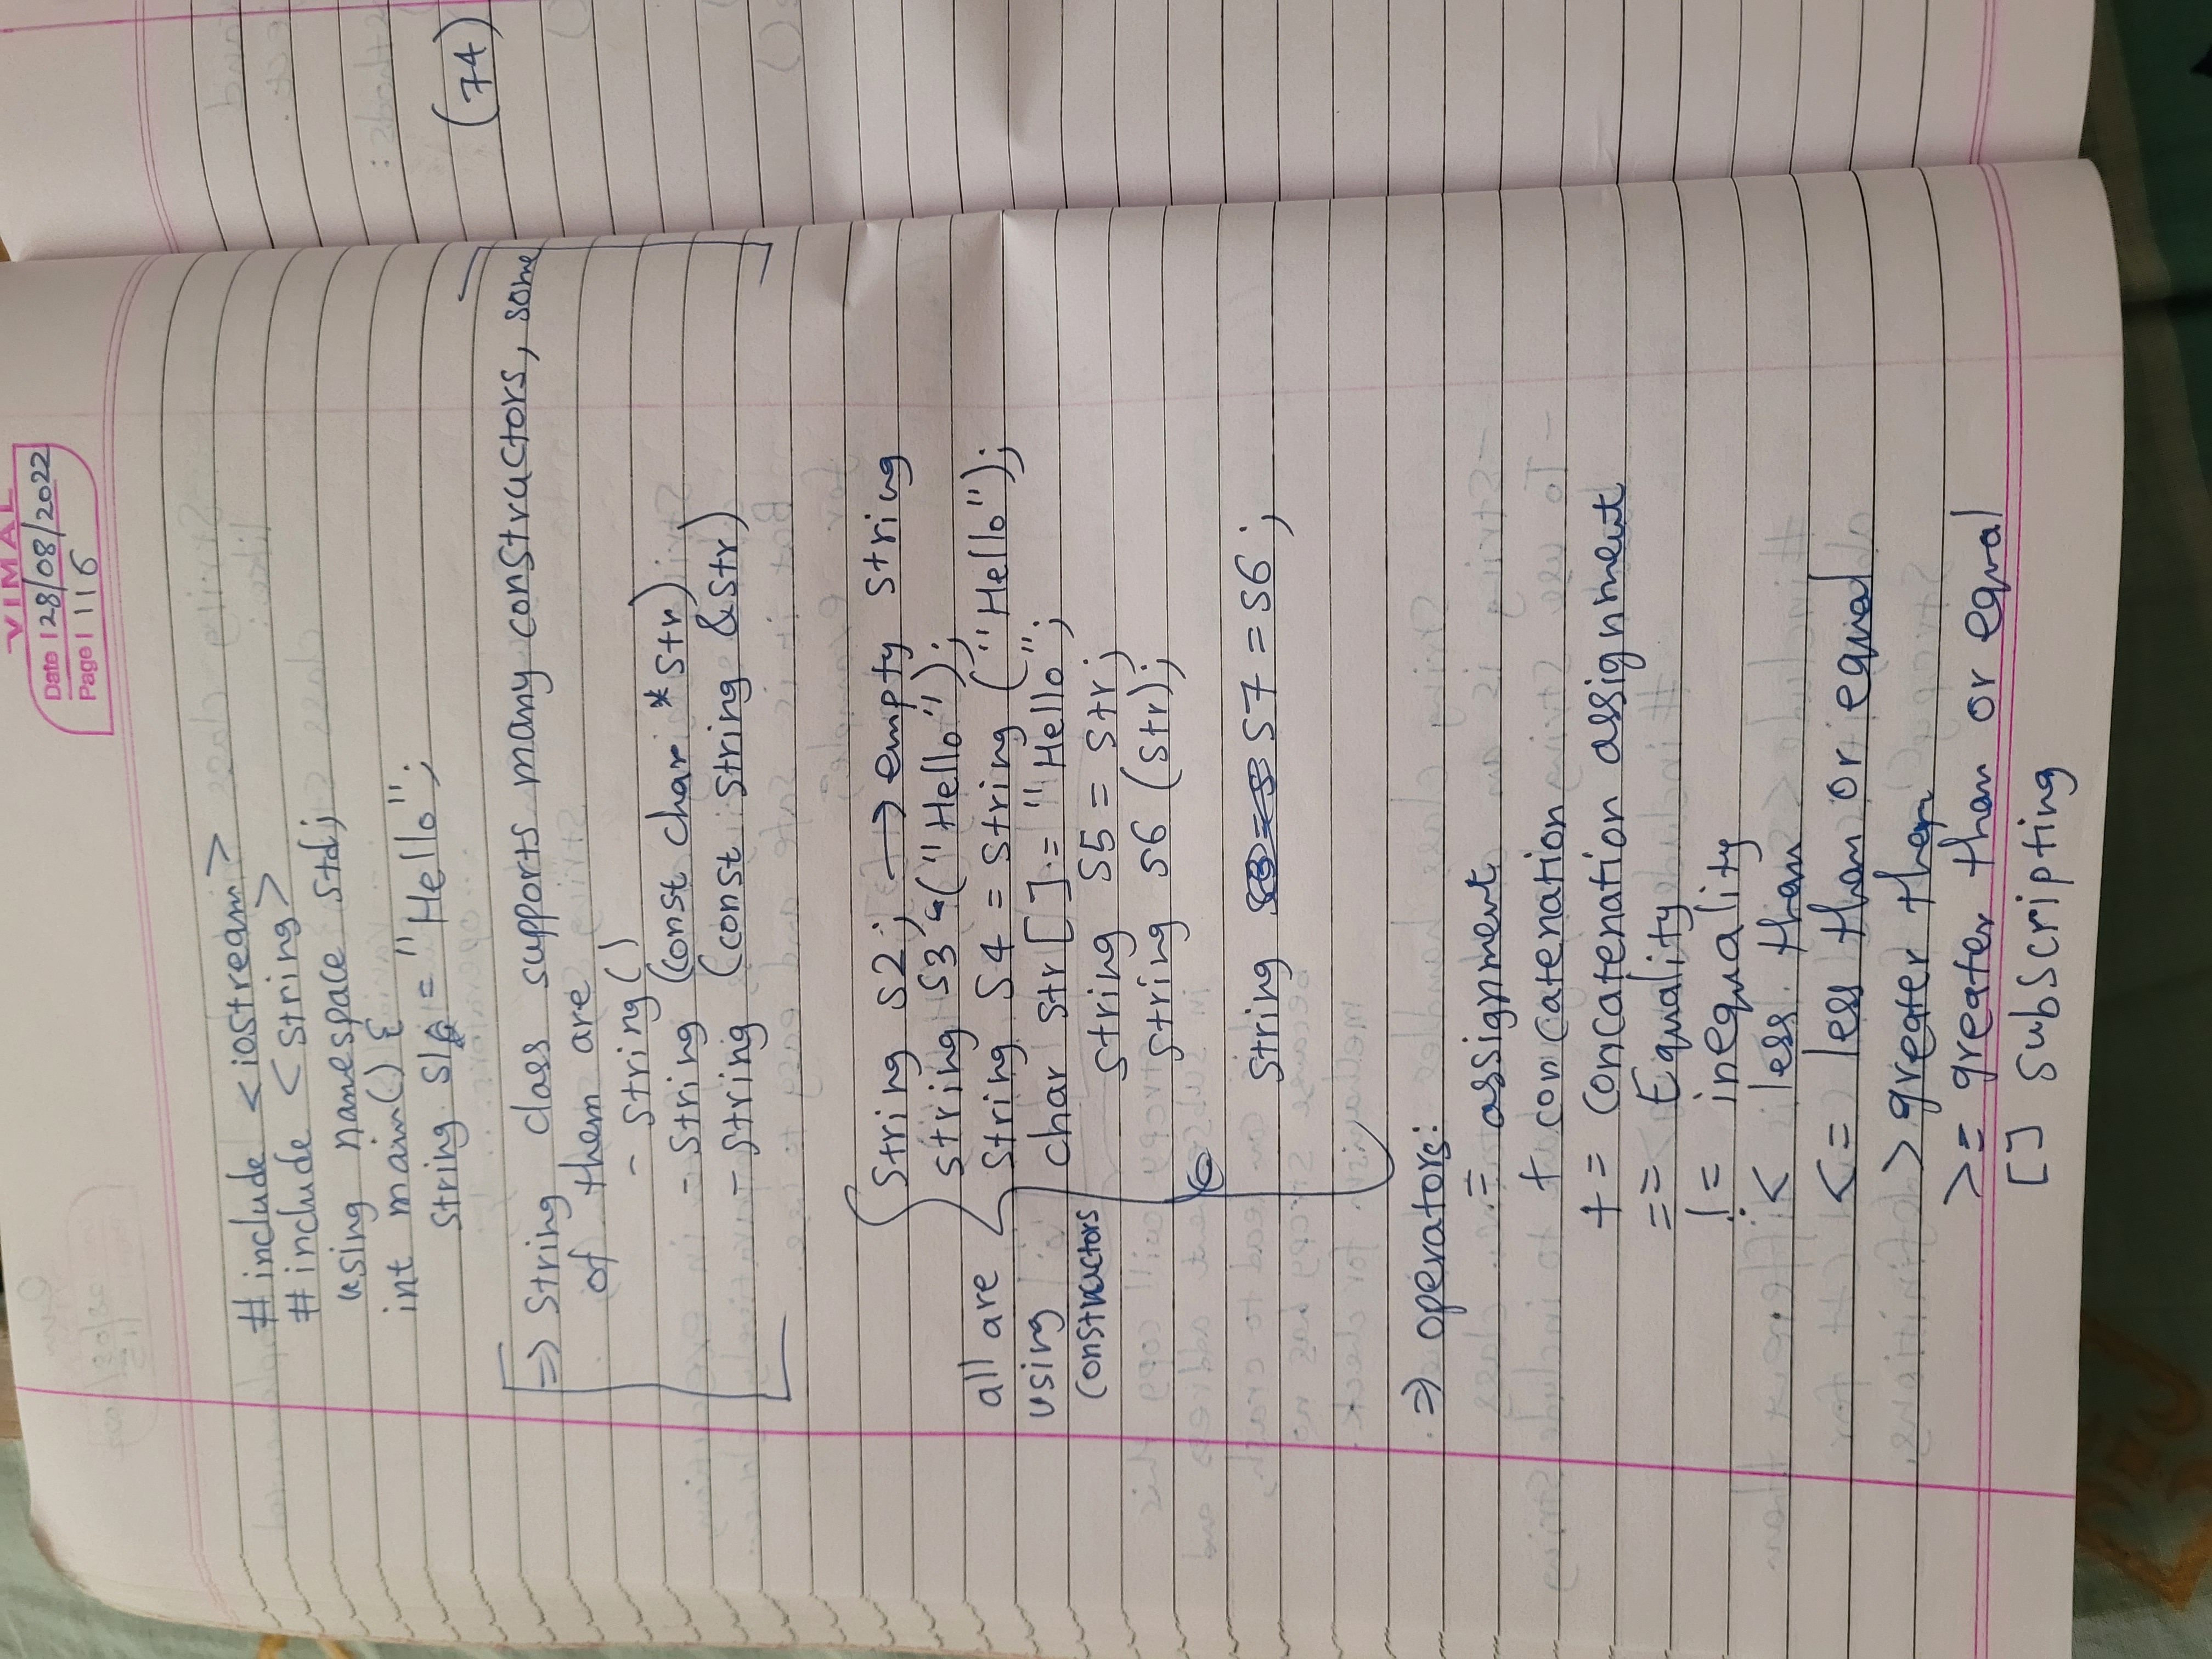 VIMAL
Date 28/08/2022
Page 116
#include <iostream>
#include <string>
using namespace std;
int main() {
string s1 = "Hello";
(74)
⇒ string class supports many constructors, some
of them are
- string()
- string (const char *str)
- string (const string &str)
string s2; → empty string
string s3 ("Hello");
all are
string s4 = string ("Hello");
using
char str[] = "Hello";
constructors
string s5 = str;
string s6 (str);
string s7 = s6;
⇒ operators:
= assignment
+ concatenation
+= concatenation assignment
== Equality
!= inequality
< less than
<= less than or equal
> greater than
>= greater than or equal
[] subscripting